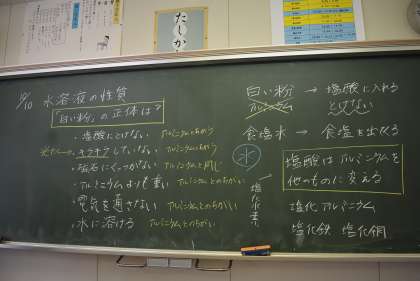 たしか
10/10 水溶液の性質
「白い粉」の正体は?
・塩酸にとけない アルミニウムとちがう
・キラキラしていない アルミニウムとちがう
・磁石にくっつかない アルミニウムと同じ
・アルミニウムよりも重い アルミニウムとのちがい
・電気を通さない アルミニウムとのちがい
・水に溶ける アルミニウムとのちがい
水
白い粉 → 塩酸に入れる
アルミニウム とけない
食塩水 → 食塩を
塩酸はアルミニウムを
他のものに変える
塩化アルミニウム
塩化鉄 塩化銅